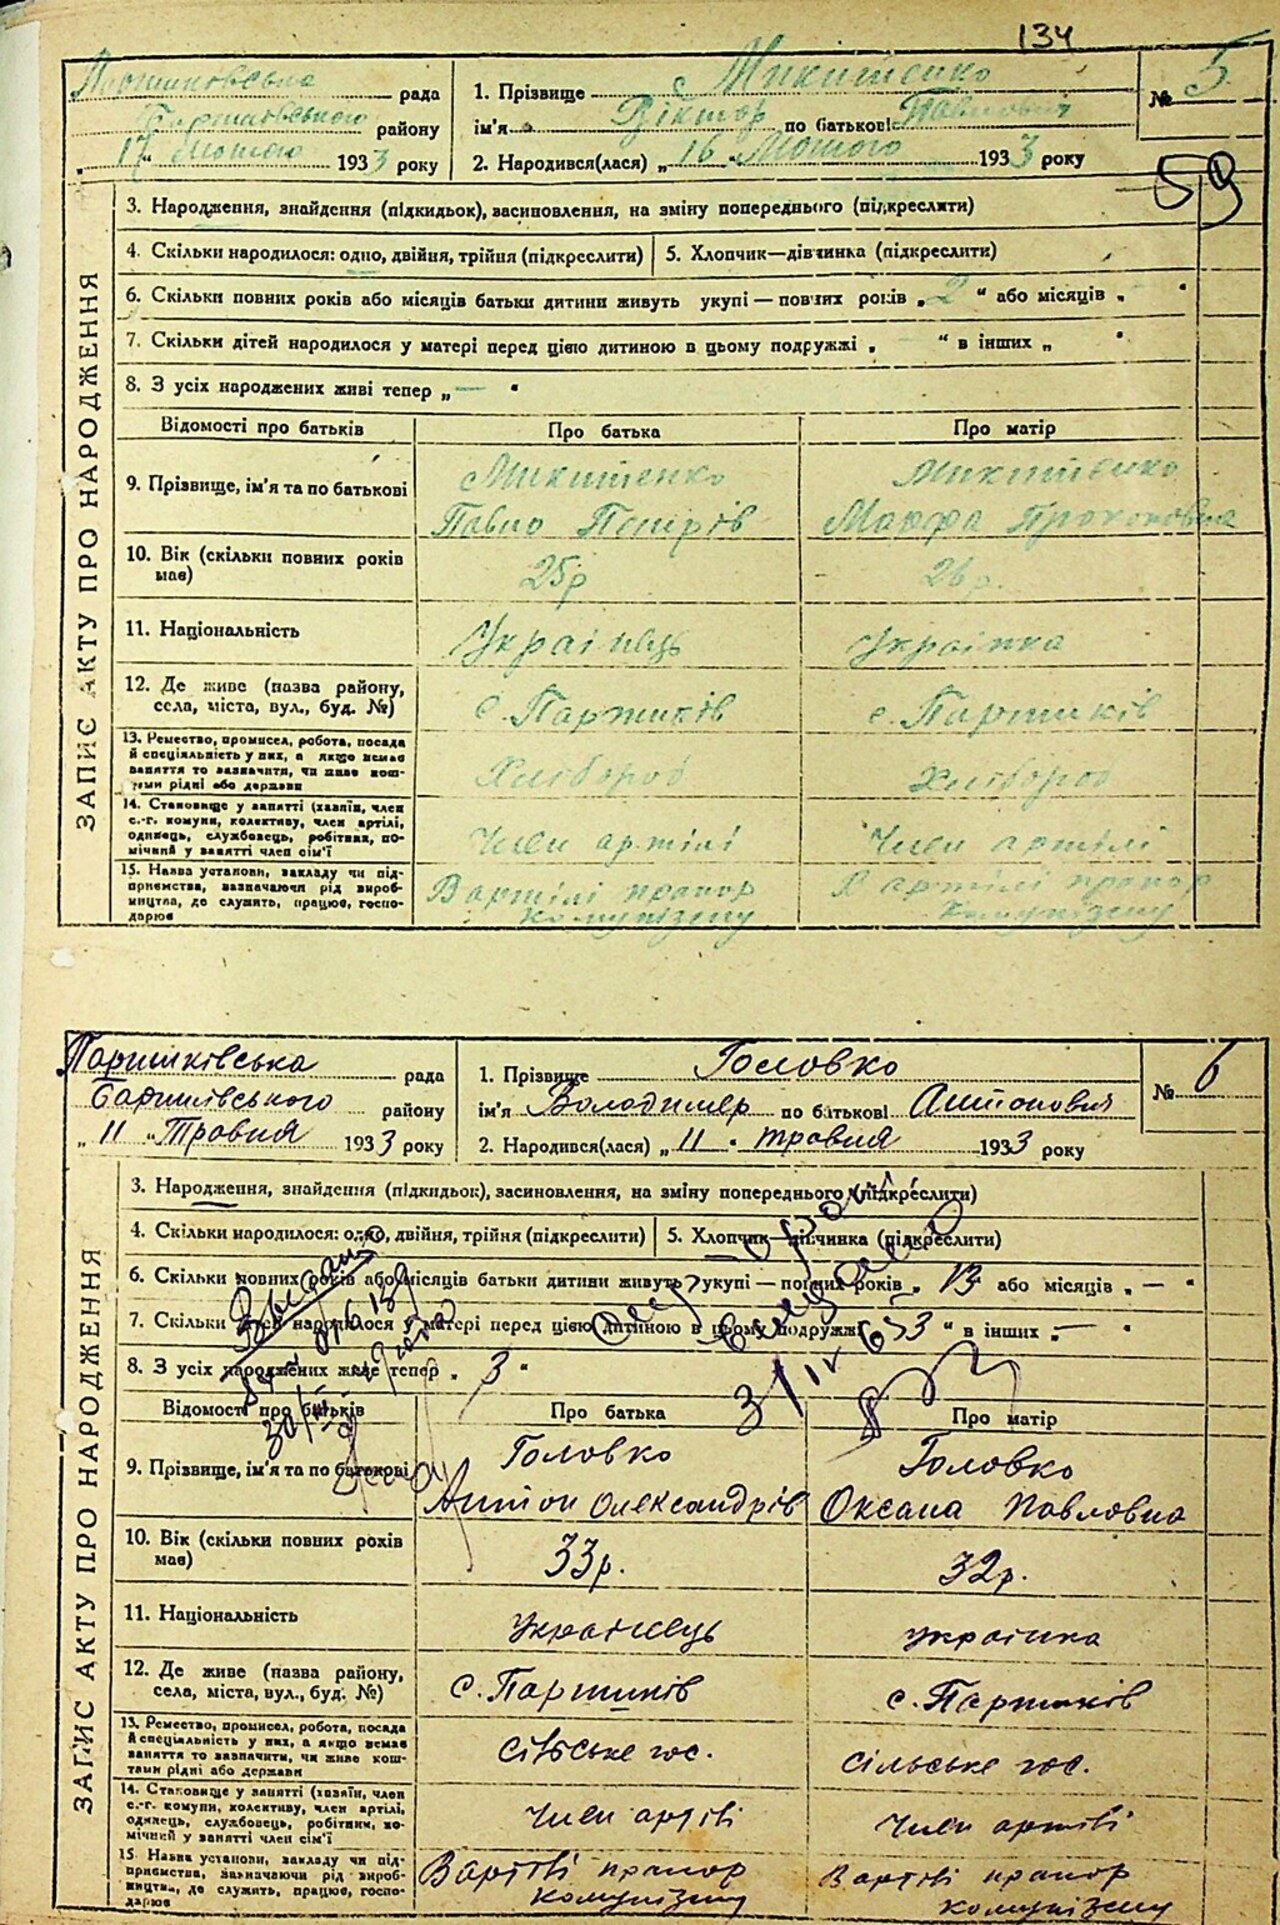 134
Паришківська рада
Баришівського району
„17" Лютого 1933 року
1. Прізвище Микитенко
ім'я Віктор по батькові Павлович
2. Народився(лася) „16" Лютого 1933 року
№ 5
59
ЗАПИС АКТУ ПРО НАРОДЖЕННЯ
3. Народження, знайдення (підкидьок), засиновлення, на зміну попереднього (підкреслити)
4. Скільки народилося: одно, двійня, трійня (підкреслити) 5. Хлопчик—дівчинка (підкреслити)
6. Скільки повних років або місяців батьки дитини живуть укупі — повних років „2" або місяців „—"
7. Скільки дітей народилося у матері перед цією дитиною в цьому подружжі „ " в інших „ "
8. З усіх народжених живі тепер „—"
Відомості про батьків Про батька Про матір
9. Прізвище, ім'я та по батькові
Микитенко Микитенко
Павло Петрів Марфа Прокоповна
10. Вік (скільки повних років має)
25р 26р.
11. Національність Українець Українка
12. Де живе (назва району,
села, міста, вул., буд. №)
с. Паришків с. Паришків
13. Ремество, промисел, робота, посада
й спеціяльність у них, а якщо немає
заняття то зазначити, чи живе кош-
тами рідні або держави
Хлібороб Хлібороб
14. Становище у занятті (хазяїн, член
с.-г. комуни, колективу, член артілі,
одинець, службовець, робітник, по-
мічний у занятті член сім'ї
Член артілі Член артілі
15. Назва установи, закладу чи під-
приємства, зазначаючи рід вироб-
ництва, де служить, працює, госпо-
дарює
В артілі прапор В артілі прапор
комунізму комунізму
Паришківська рада
Баришівського району
„11" Травня 1933 року
1. Прізвище Головко
ім'я Володимер по батькові Антонович
2. Народився(лася) „11" травня 1933 року
№ 6
ЗАПИС АКТУ ПРО НАРОДЖЕННЯ
3. Народження, знайдення (підкидьок), засиновлення, на зміну попереднього (підкреслити)
4. Скільки народилося: одно, двійня, трійня (підкреслити) 5. Хлопчик—дівчинка (підкреслити)
6. Скільки повних років або місяців батьки дитини живуть укупі — повних років „13" або місяців „—"
7. Скільки дітей народилося у матері перед цією дитиною в цьому подружжі „3" в інших „—"
8. З усіх народжених живе тепер „3"
Відомості про батьків Про батька Про матір
9. Прізвище, ім'я та по батькові
Головко Головко
Антон Олександрів Оксана Павловна
10. Вік (скільки повних років має)
33р. 32р.
11. Національність українець українка
12. Де живе (назва району,
села, міста, вул., буд. №)
с. Паришків с. Паришків
13. Ремество, промисел, робота, посада
й спеціяльність у них, а якщо немає
заняття то зазначити, чи живе кош-
тами рідні або держави
сільське гос. сільське гос.
14. Становище у занятті (хазяїн, член
с.-г. комуни, колективу, член артілі,
одинець, службовець, робітник, по-
мічний у занятті член сім'ї
Член артілі Член артілі
15. Назва установи, закладу чи під-
приємства, зазначаючи рід вироб-
ництва, де служить, працює, госпо-
дарює
В артілі прапор В артілі прапор
комунізму комунізму